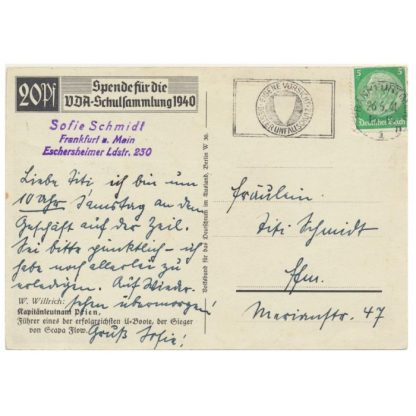 20Pf
Spende für die
VDA-Schulsammlung 1940
Sofie Schmidt
Frankfurt a. Main
Eschersheimer Ldstr. 250
Liebe Titi ich bin um
10 Uhr Samstag an den
Geschäft auf der Zeil.
Sei bitte pünktlich - ich
habe noch allerlei zu
erledigen. Auf Wieder-
sehen übermorgen!
Gruß Sofie!
W. Willrich:
Kapitänleutnant Prien,
Führer eines der erfolgreichsten U-Boote, der Sieger
von Scapa Flow.
Volksbund für das Deutschtum im Ausland, Berlin W 30.
EIGENE VORSICHT
5
5
Deutsches Reich
26.5.41
Fräulein
Titi Schmidt
Ffm.
Marienstr. 47